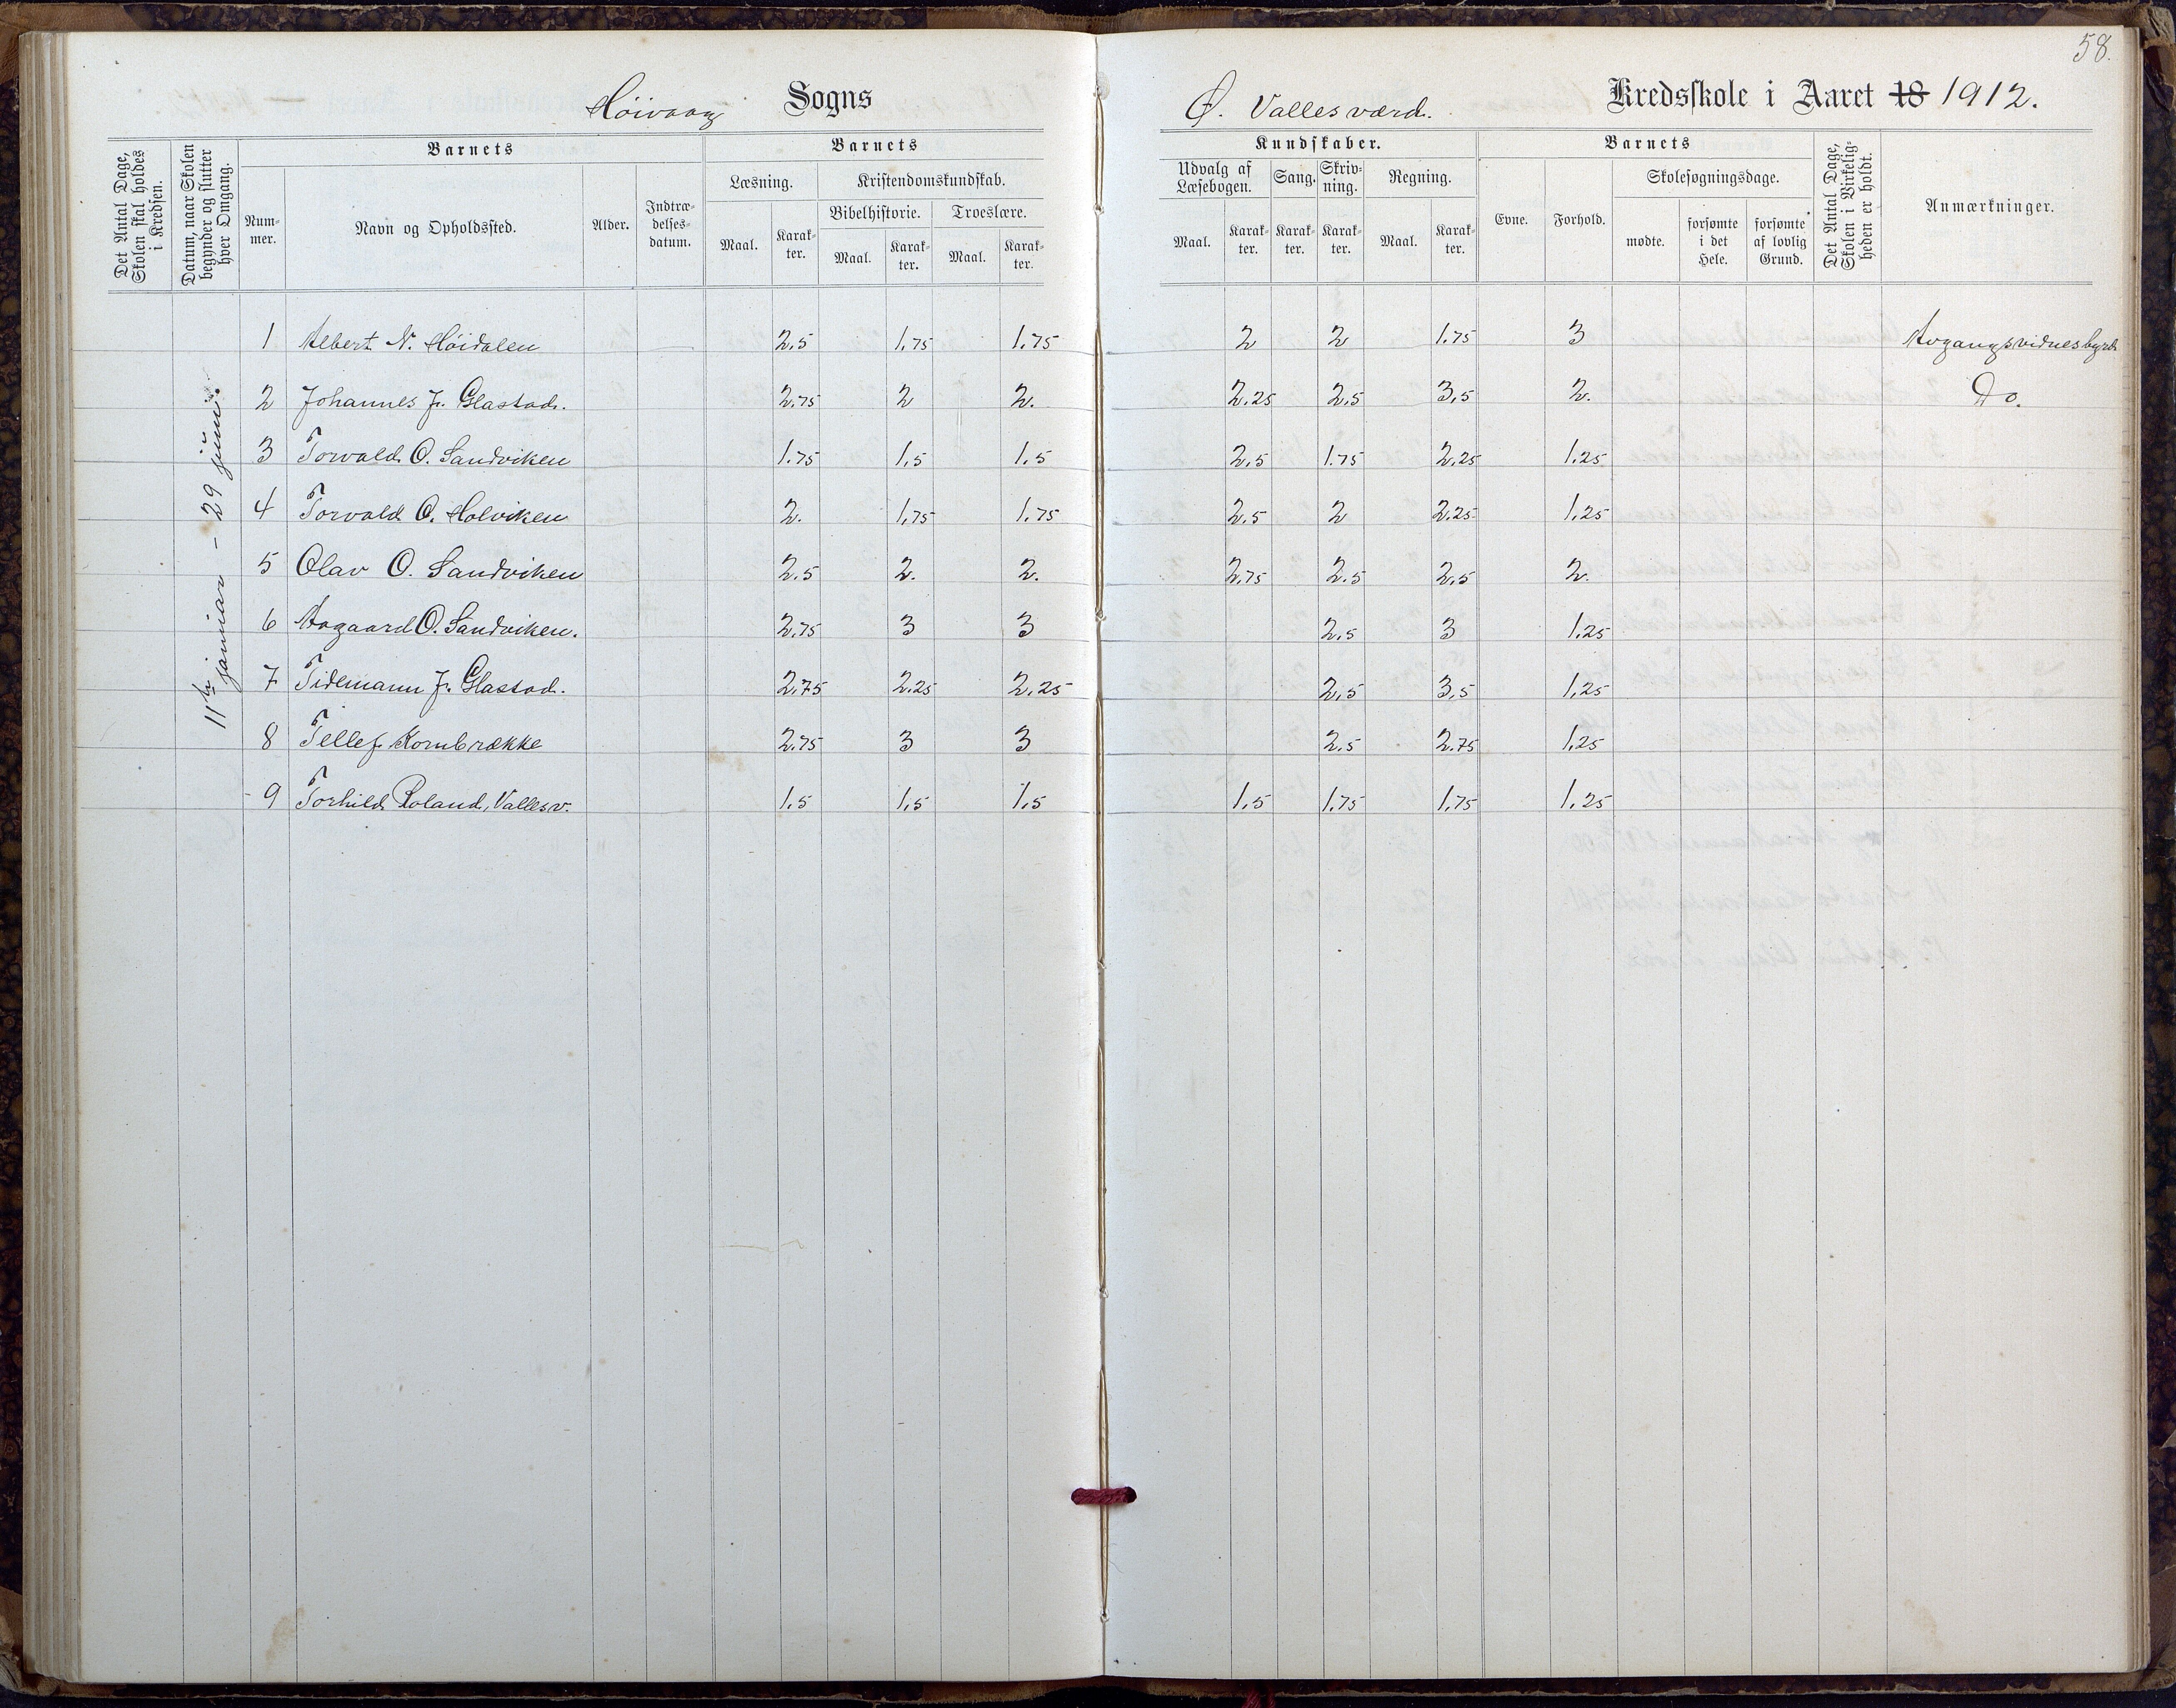 58.
Høivaag Sogns
Ø. Vallesværd. Kredsskole i Aaret 18 1912.
Det Antal Dage, Skolen skal holdes i Kredsen.
Datum, naar Skolen begynder og slutter hver Omgang.
Barnets
Num-
mer.
Navn og Opholdssted.
Alder.
Indtræ-
delses-
datum.
Barnets
Læsning.
Kristendomskundskab.
Bibelhistorie. Troeslære.
Maal. Karak-
ter. Maal. Karak-
ter. Maal. Karak-
ter.
Kundskaber.
Udvalg af
Læsebogen. Sang. Skriv-
ning. Regning.
Maal. Karak-
ter. Karak-
ter. Karak-
ter. Maal. Karak-
ter.
Barnets
Evne. Forhold.
Skolesøgningsdage.
mødte. forsømte
i det
Hele. forsømte
af lovlig
Grund.
Det Antal Dage, Skolen i Virkelig-
heden er holdt.
Anmærkninger.
11te januar - 29 juni.
1 Albert N. Høidalen 2.5 1.75 1.75 2 2 1.75 3 Avgangsvidnesbyrd
2 Johannes J. Glastad. 2.75 2 2. 2.25 2.5 3,5 2. Do.
3 Torvald O. Sandviken 1.75 1,5 1.5 2.5 1.75 2.25 1.25
4 Torvald O. Holviken 2. 1,75 1.75 2.5 2 2.25 1.25
5 Olav O. Sandviken 2.5 2. 2. 2.75 2.5 2,5 2.
6 Aagaard O. Sandviken. 2.75 3 3 2,5 3 1.25
7 Tidemann J. Glastad. 2.75 2.25 2.25 2,5 3,5 1,25
8 Tellef Kornbrække 2.75 3 3 2.5 2.75 1,25
9 Torhild Roland, Vallesv. 1.5 1,5 1,5 1,5 1,75 1,75 1,25